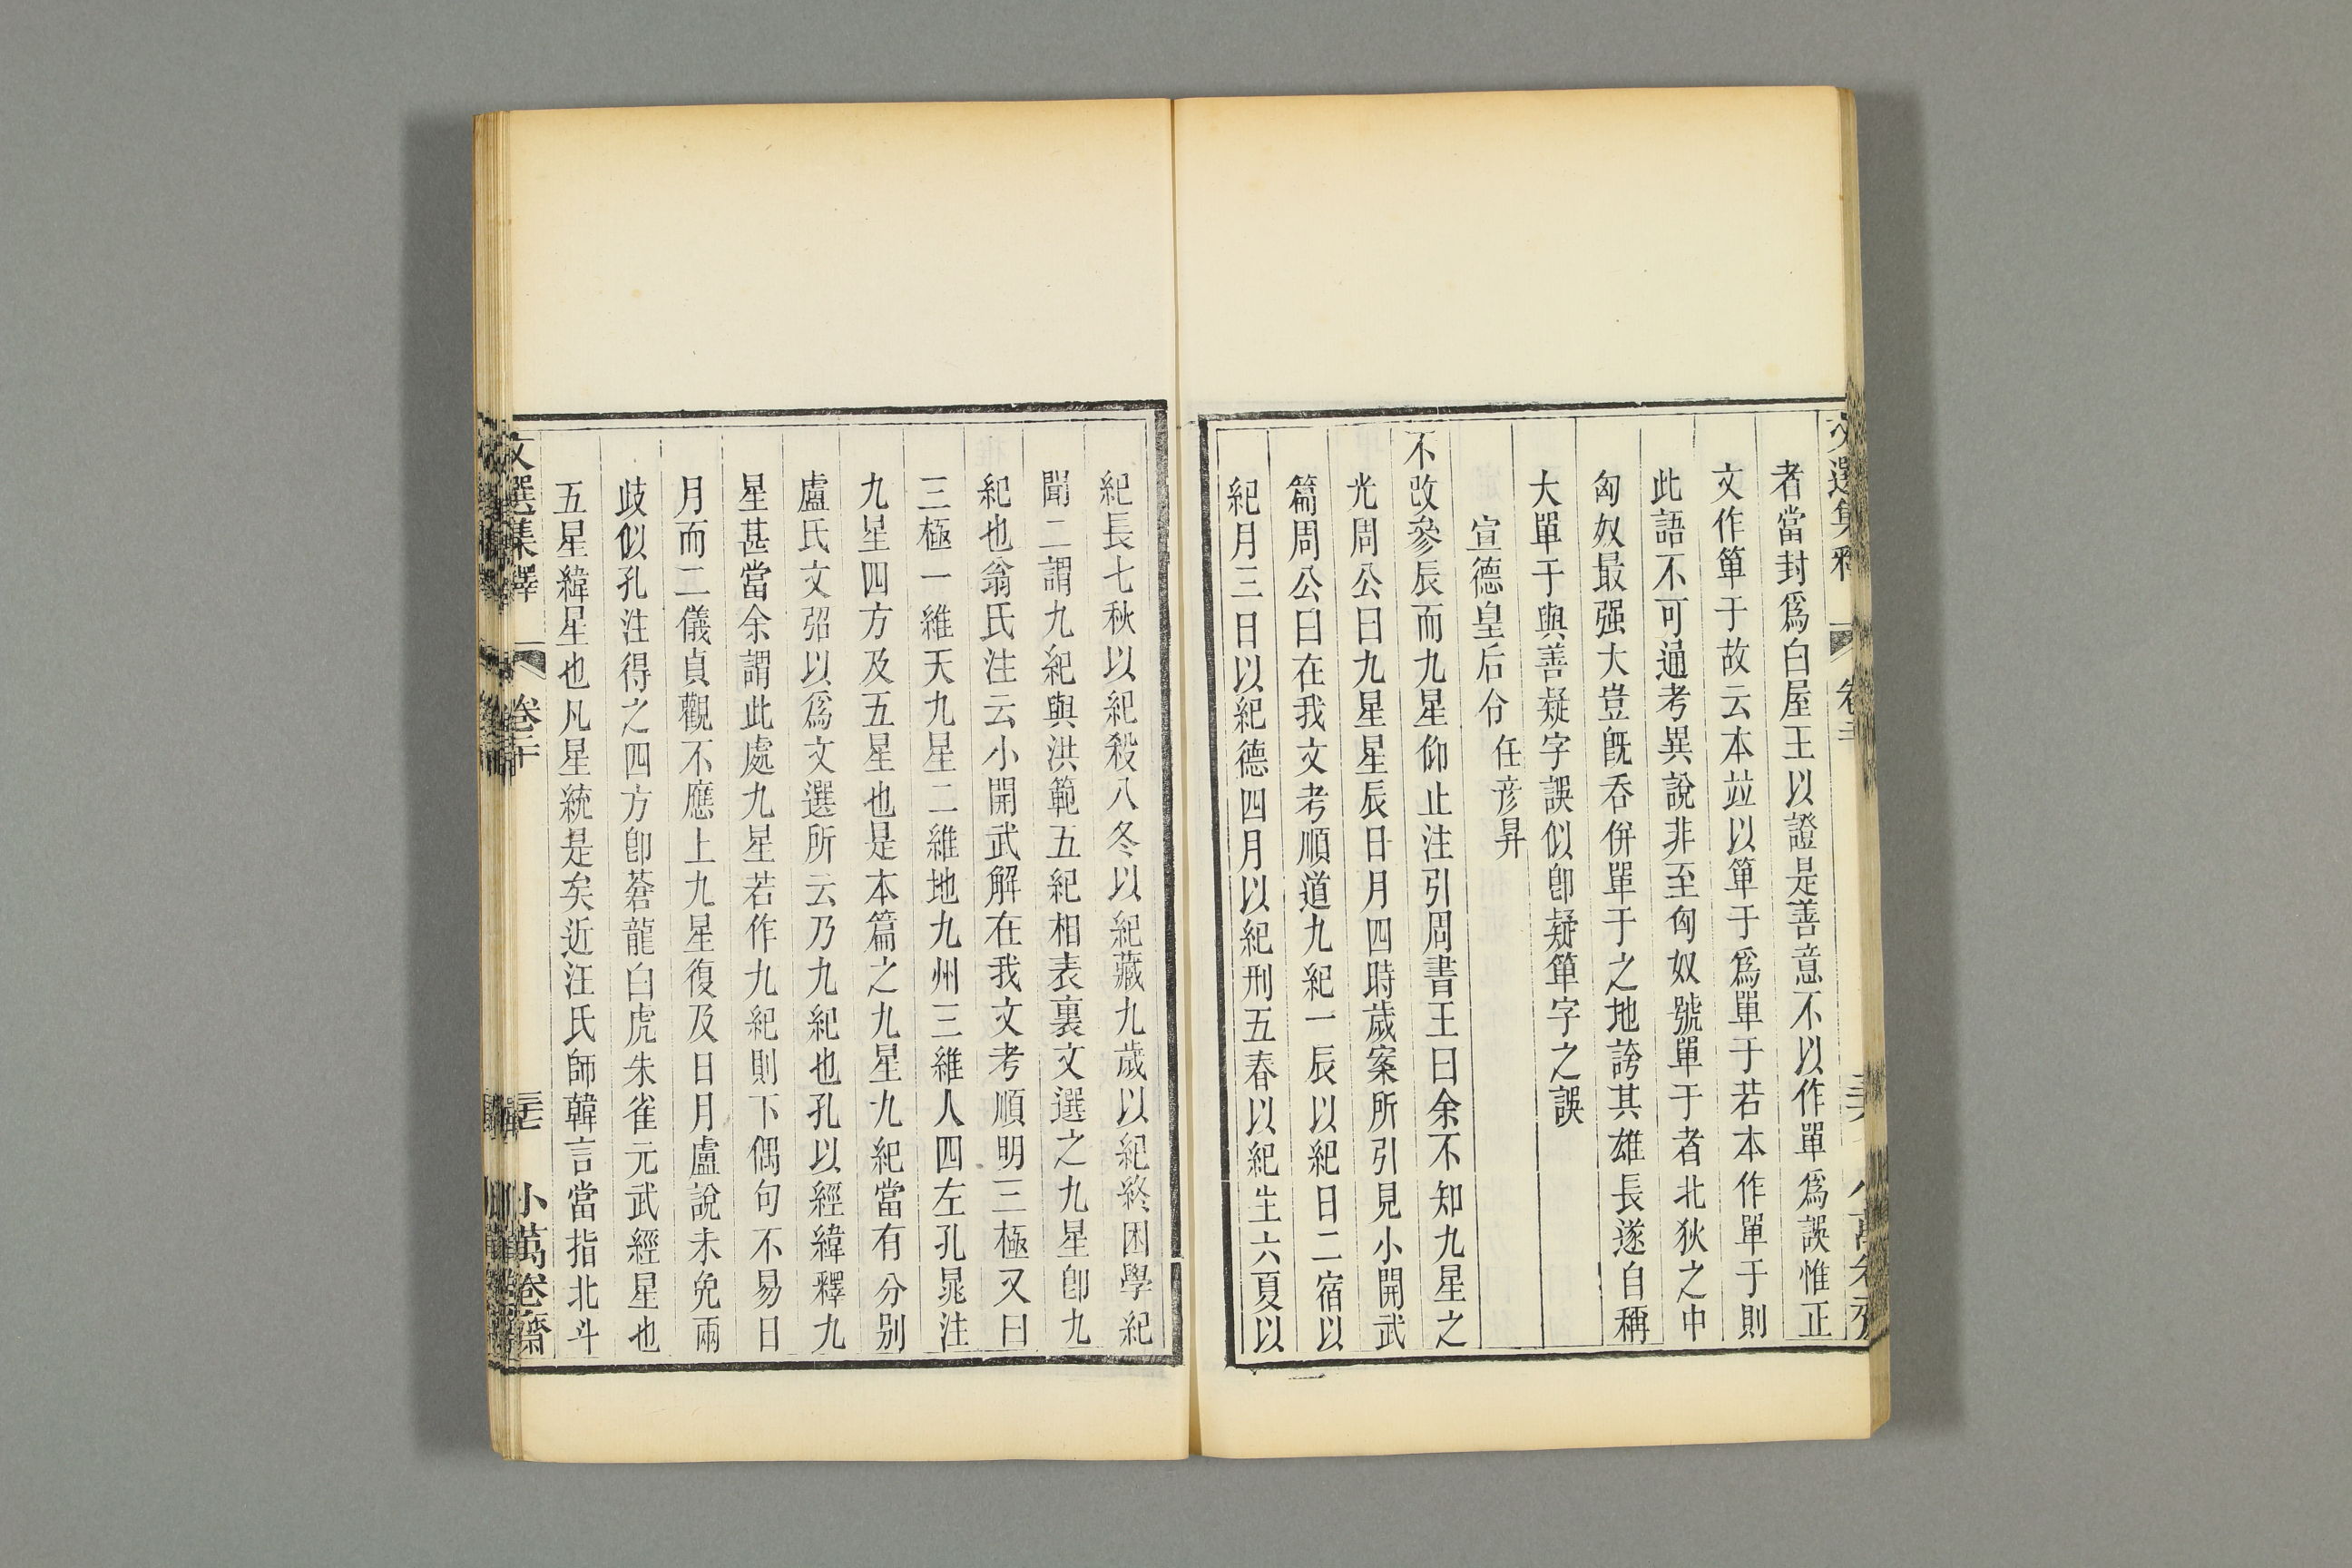 者當封爲白屋王以證是善意不以作單爲誤惟正
文作箪于故云本竝以箪于爲單于若本作單于則
此語不可通考異說非至匈奴號單于者北狄之中
匈奴最强大豈旣吞併單于之地誇其雄長遂自稱
大單于與善疑字誤似卽疑箪字之誤
宣德皇后令 任彥昇
不改參辰而九星仰止注引周書王曰余不知九星之
光周公曰九星星辰日月四時歲案所引見小開武
篇周公曰在我文考順道九紀一辰以紀日二宿以
紀月三日以紀德四月以紀刑五春以紀生六夏以
紀長七秋以紀殺八冬以紀藏九歲以紀終困學紀
聞二謂九紀與洪範五紀相表裏文選之九星卽九
紀也翁氏注云小開武解在我文考順明三極又曰
三極一維天九星二維地九州三維人四左孔晁注
九星四方及五星也是本篇之九星九紀當有分別
盧氏文弨以爲文選所云乃九紀也孔以經緯釋九
星甚當余謂此處九星若作九紀則下偶句不易日
月而二儀貞觀不應上九星復及日月盧說未免兩
歧似孔注得之四方卽蒼龍白虎朱雀元武經星也
五星緯星也凡星統是矣近汪氏師韓言當指北斗
文選集釋 卷二十 三七 小萬卷齋